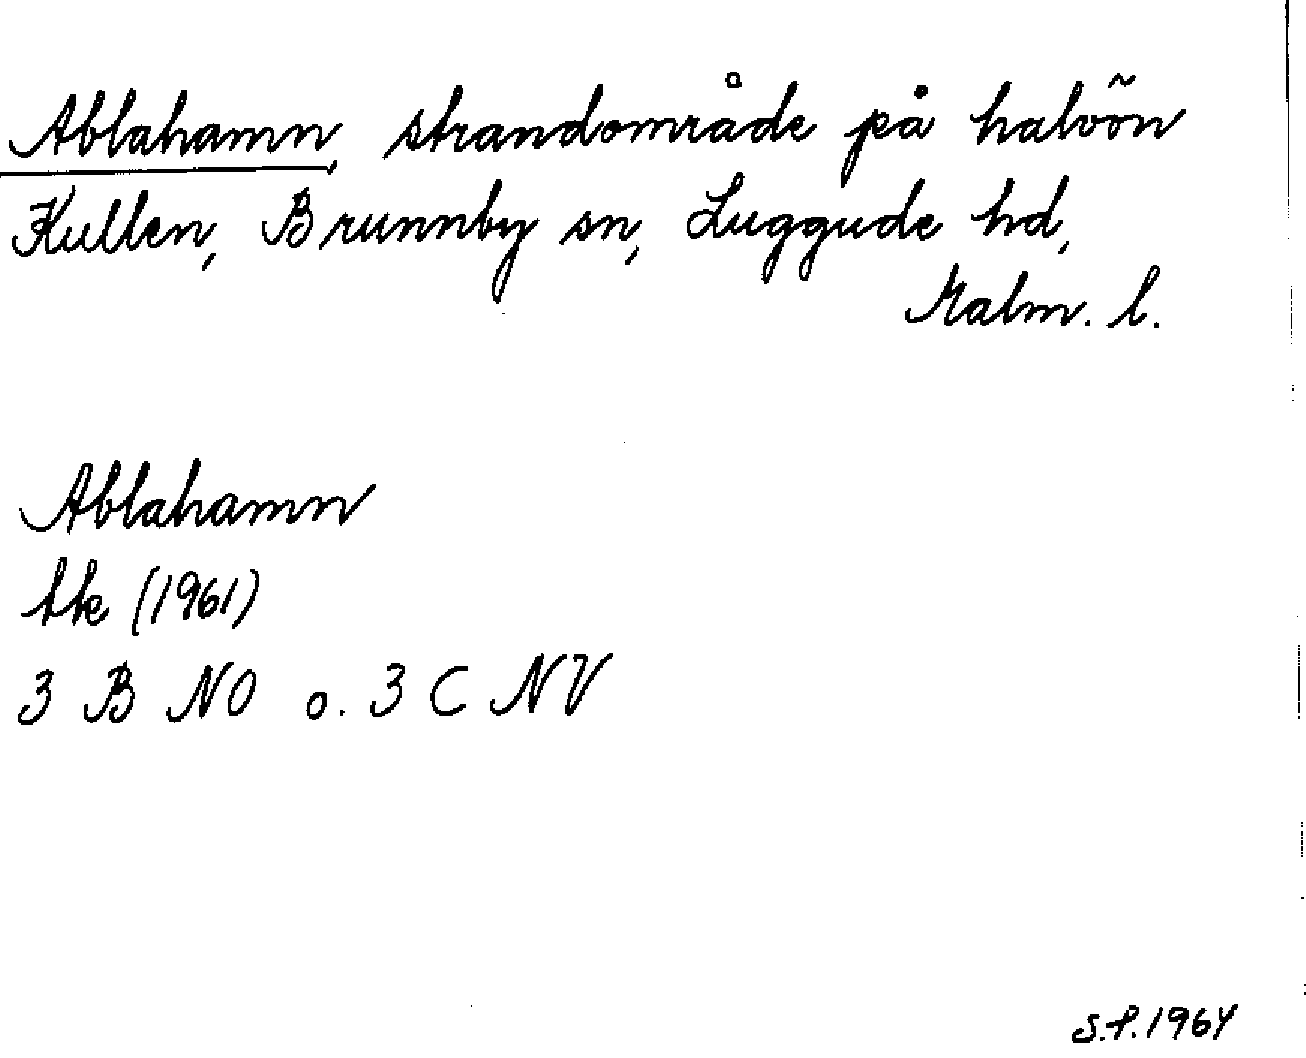 Ablahamn, strandområde på halvön
Kullen, Brunnby sn, Luggude hd,
Malm. l.
Ablahamn
tk (1961)
3 B NO o. 3 C NV
S.P. 1964